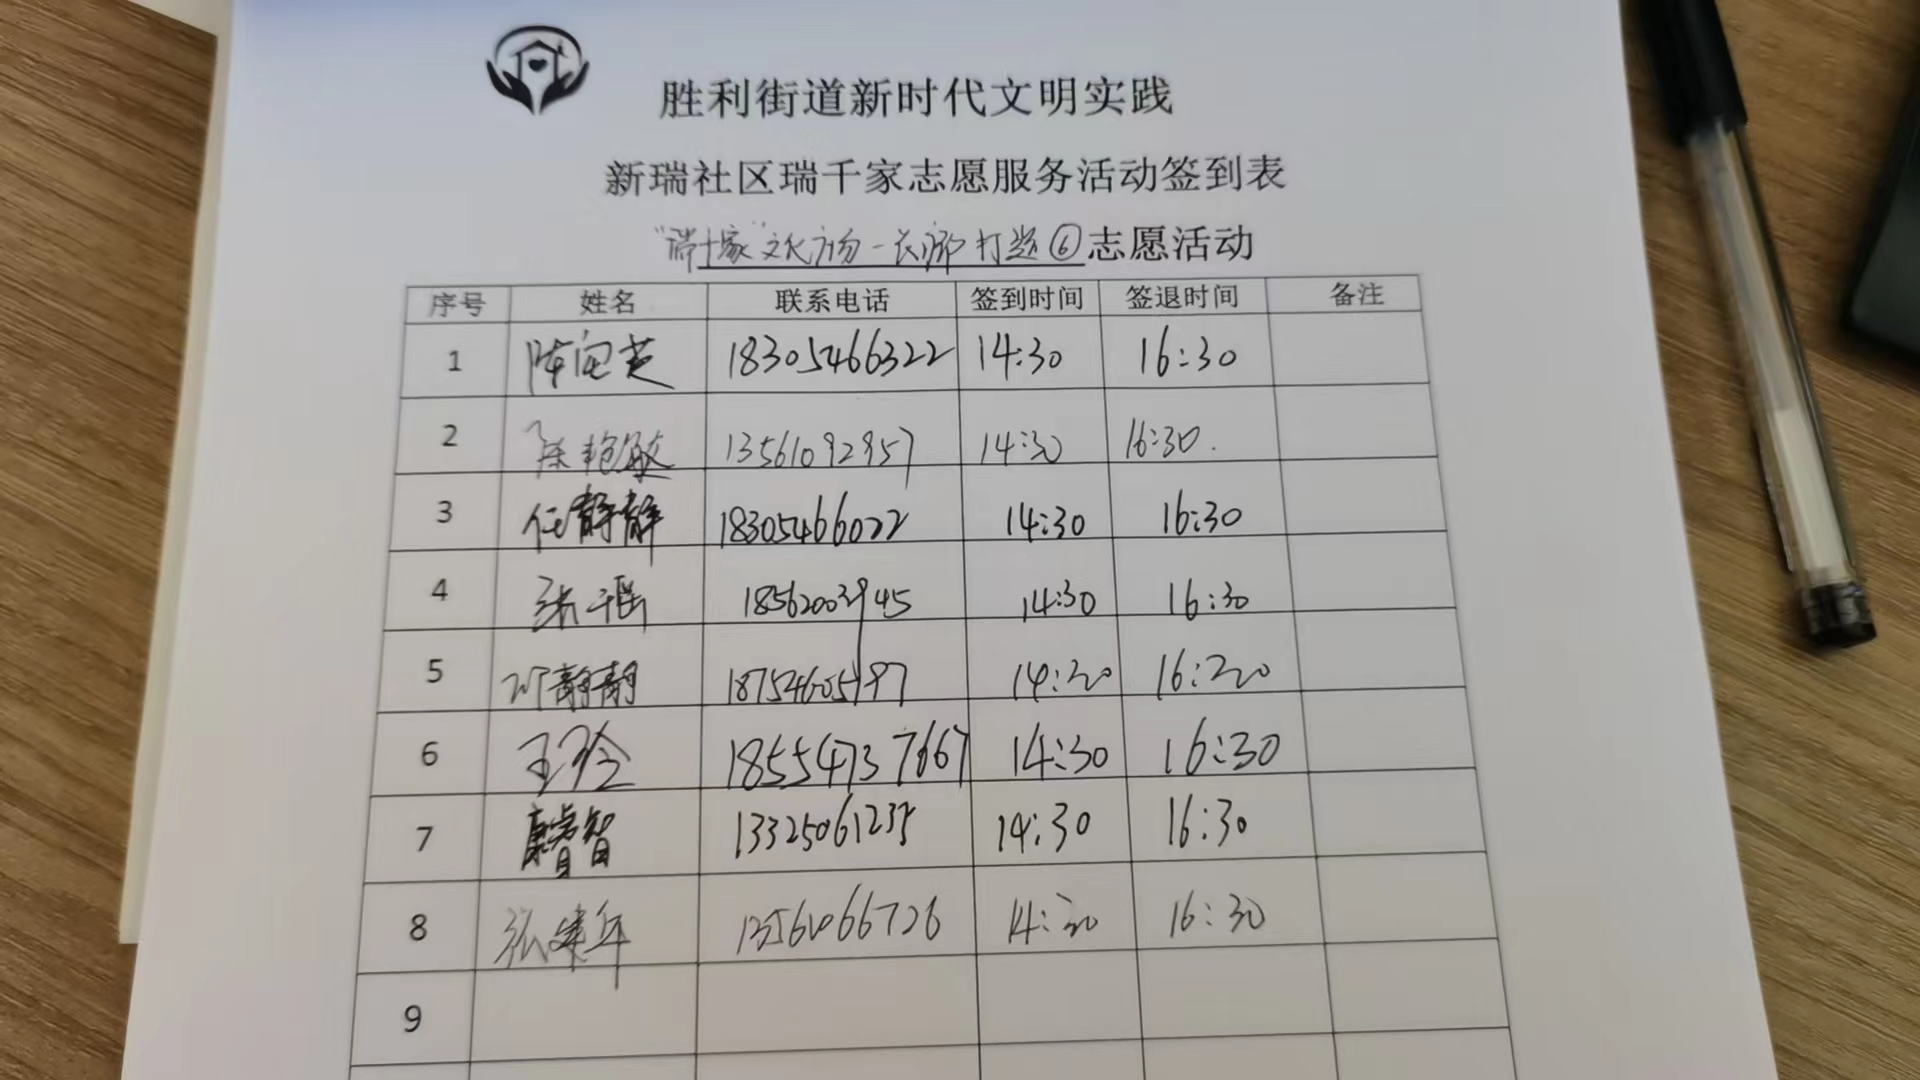 胜利街道新时代文明实践
新瑞社区瑞千家志愿服务活动签到表
志愿活动
序号 姓名 联系电话 签到时间 签退时间 备注
1 18305466322 14:30 16:30
2 陈艳敏 13561092957 14:30 16:30.
3 任静静 18305466022 14:30 16:30
4 张瑶 18562003945 14:30 16:30
5 邓静静 18754605197 14:30 16:30
6 王玲 18554737667 14:30 16:30
7 康睿智 14:30 16:30
8 张建年 13561066726 14:30 16:30
9